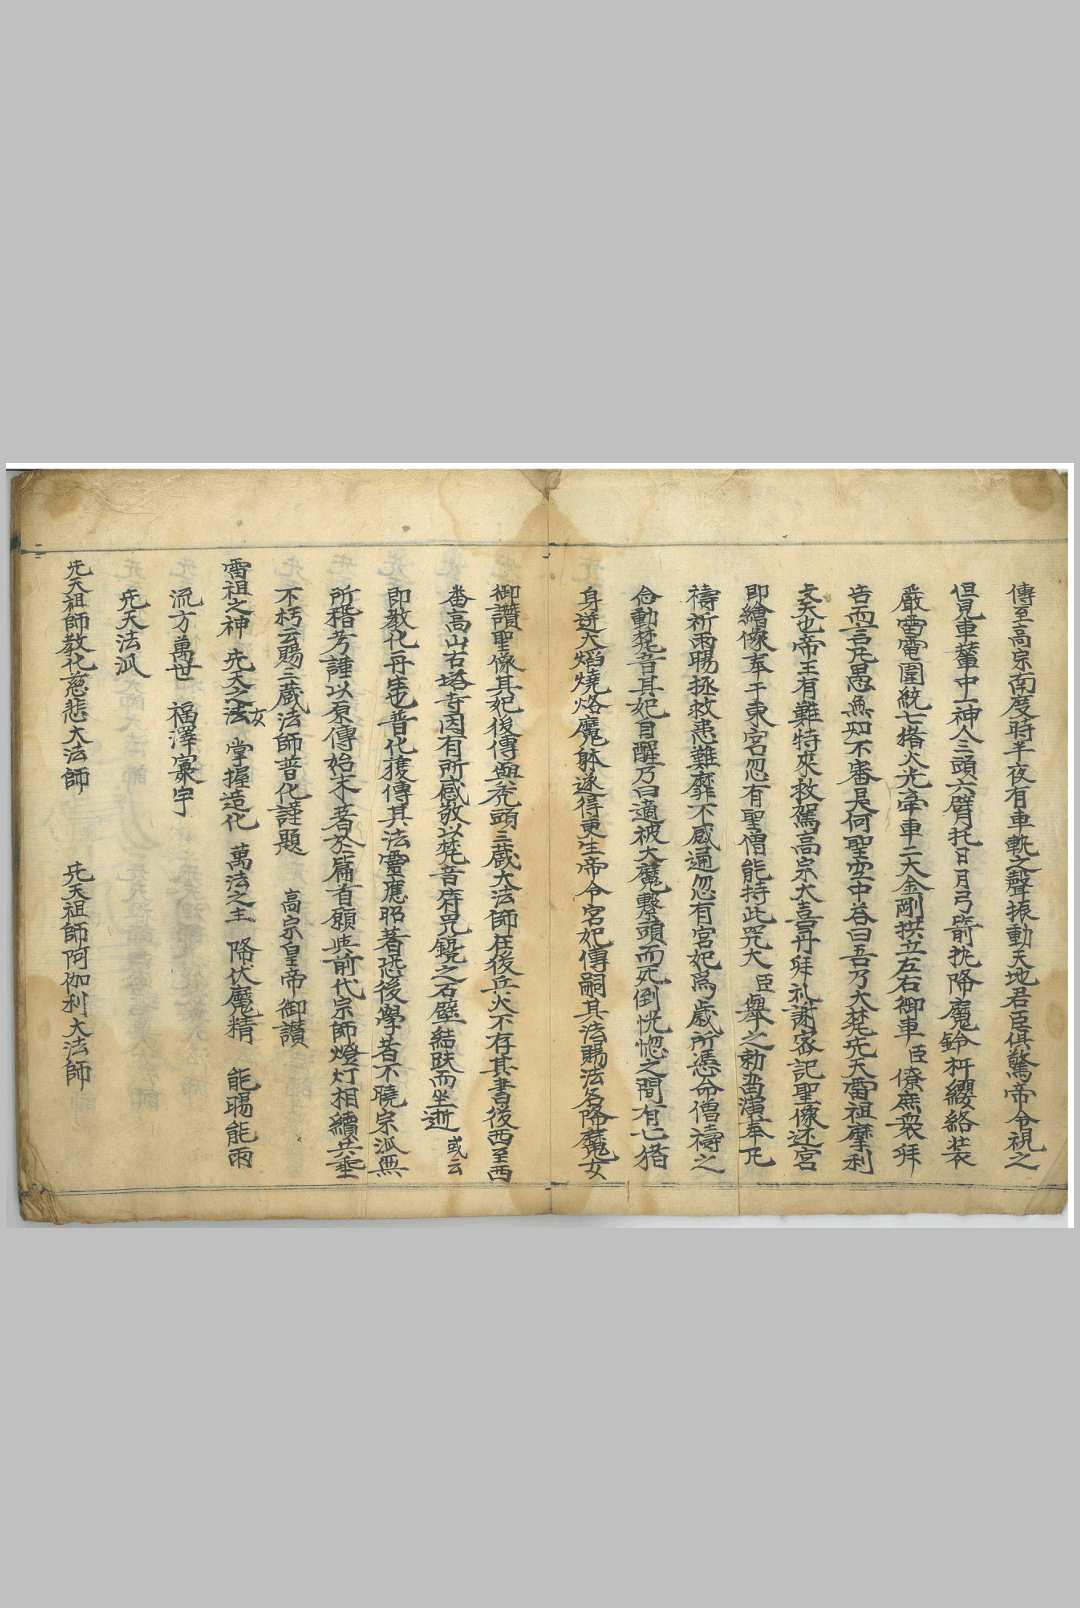 傳至高宗南度時半夜有車軌之聲振動天地君臣俱驚帝令視之
但見車輦中一神人三頭六臂托日月弓箭抌降魔鈴杵纓絡裝
嚴雷電圍統七猪火光牽車二大金剛拱立左右御車臣僚庶衆拜
告而言凡愚無知不審是何聖空中答曰吾乃大梵先天雷祖摩利
支天也帝王有難特來救駕高宗大喜再拜礼謝密記聖像还宮
即繪像奉于東宮忽有聖僧能持此咒大臣舉之勅畨演奉凡
禱祈雨暘拯救患難靡不感通忽有宮妃為歲所憑命僧禱之
念動梵音其妃目醒乃曰適被大魔繫頭而死倒恍惚之間有七猪
身迸火焰燒烙魔躰遂得更生帝令宮妃傳嗣其法賜法名降魔女
御讚聖像其妃後傳與禿頭三藏大法師在後兵火不存其書後西至西
畨高山石塔寺因有所感敬以梵音府咒鐃之石壁結趺而坐逝或云
即教化再生也普化獲傳其法靈應昭著恐後學者不曉宗派無
所稽考謹以原傳始末著於篇首願與前代宗師燈灯相續共垂
不朽云賜三藏法師普化謹題　高宗皇帝御讚
雷祖之神　先天之法女　掌握造化　萬法之主　降伏魔精　能暘能雨
流方萬世　福澤寰宇
先天法派
先天祖師教化慈悲大法師　先天祖師阿伽利大法師